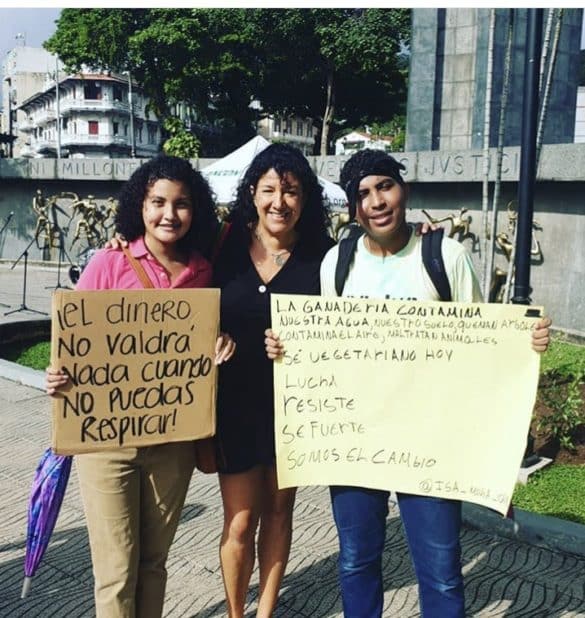 NI MILLONE
JVSTICI
¡EL DINERO,
NO VALDRÁ
NADA CUANDO
NO PUEDAS
RESPIRAR!
LA GANADERIA CONTAMINA
NUESTRA AGUA, NUESTRO SUELO, QUEMAN ARBOLES
CONTAMINA EL AIRE, MALTRATAN ANIMALES
SÉ VEGETARIANO HOY
LUCHA
RESISTE
SE FUERTE
SOMOS EL CAMBIO